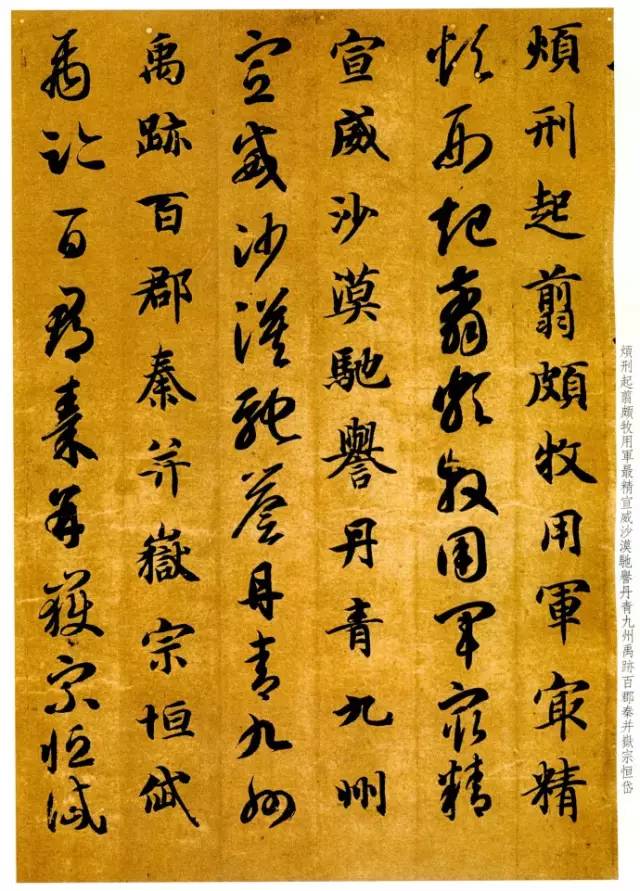 煩刑起翦頗牧用軍最精宣威沙漠馳譽丹青九州禹跡百郡秦并嶽宗恒岱
煩刑起翦頗牧用軍冣精
煩刑起翦頗牧用軍冣精
宣威沙漠馳譽丹青九州
宣威沙漠馳譽丹青九州
禹跡百郡秦并嶽宗恒岱
禹跡百郡秦并嶽宗恒岱